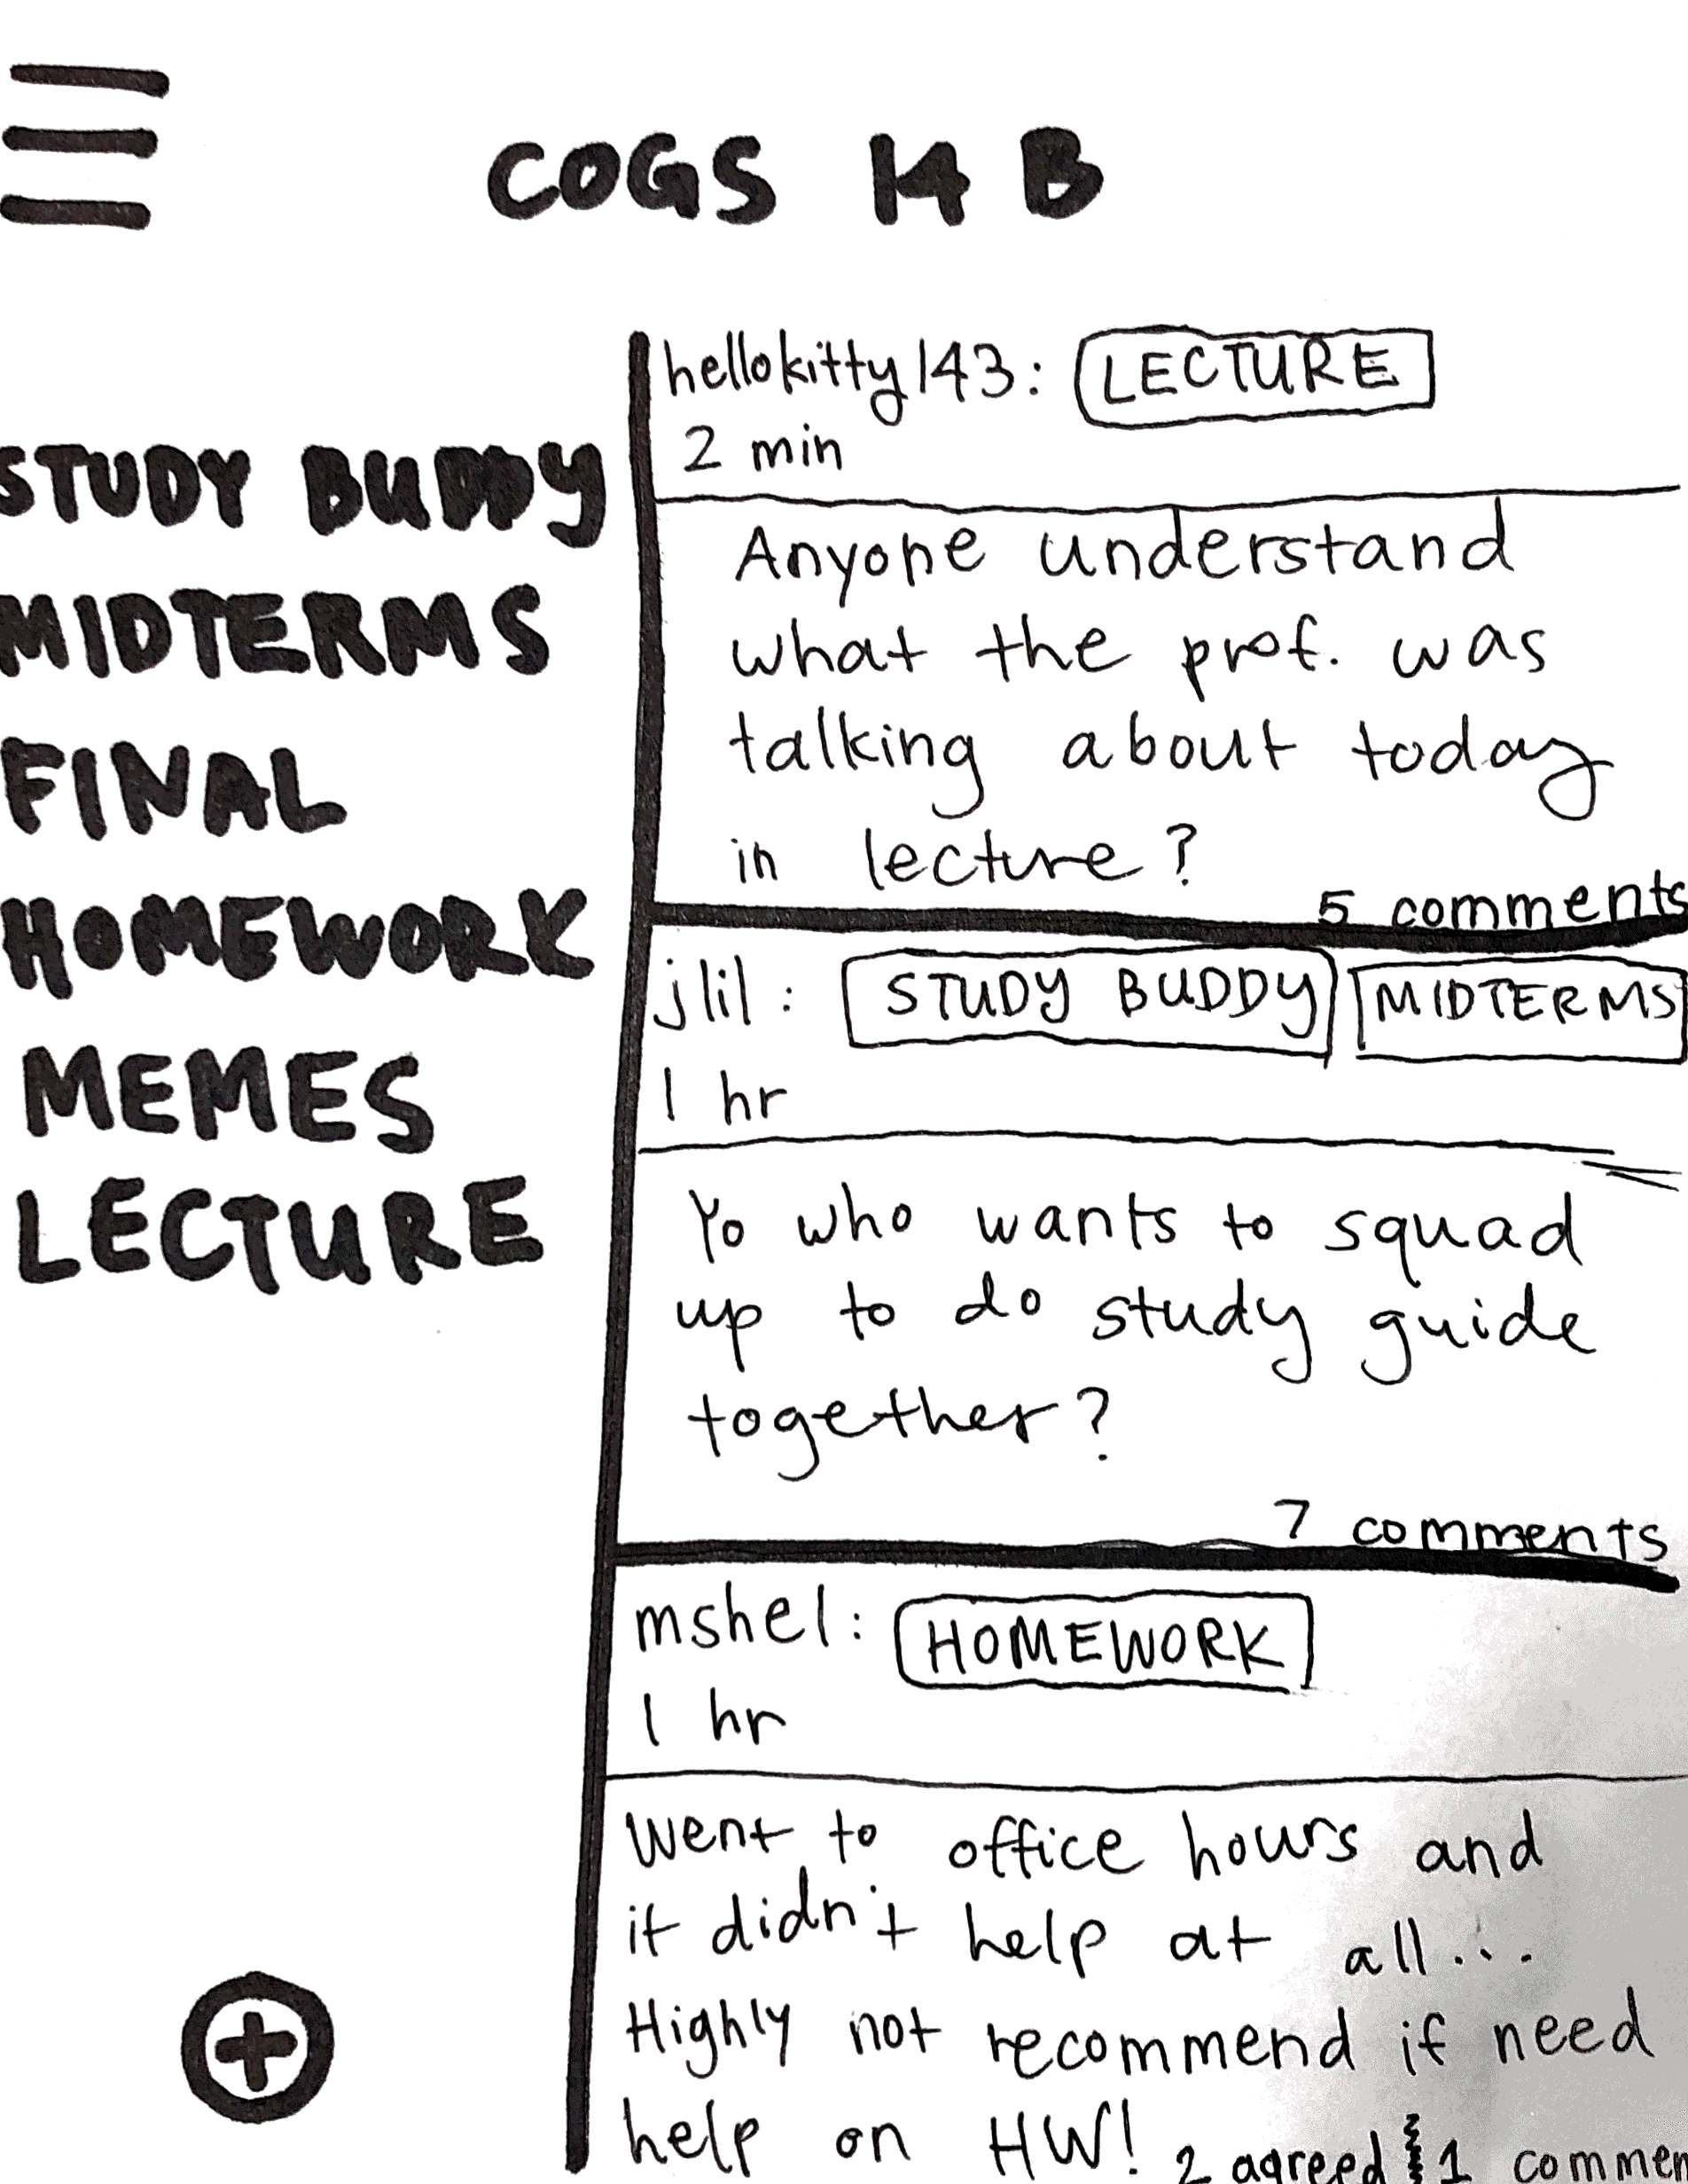 COGS 14 B
STUDY BUDDY
MIDTERMS
FINAL
HOMEWORK
MEMES
LECTURE
hellokitty143: LECTURE
2 min
Anyone understand
what the prof. was
talking about today
in lecture?
5 comments
jlil: STUDY BUDDY MIDTERMS
1 hr
Yo who wants to squad
up to do study guide
together?
7 comments
mshel: HOMEWORK
1 hr
Went to office hours and
it didn't help at all...
Highly not recommend if need
help on HW!
2 agreed 1 commen